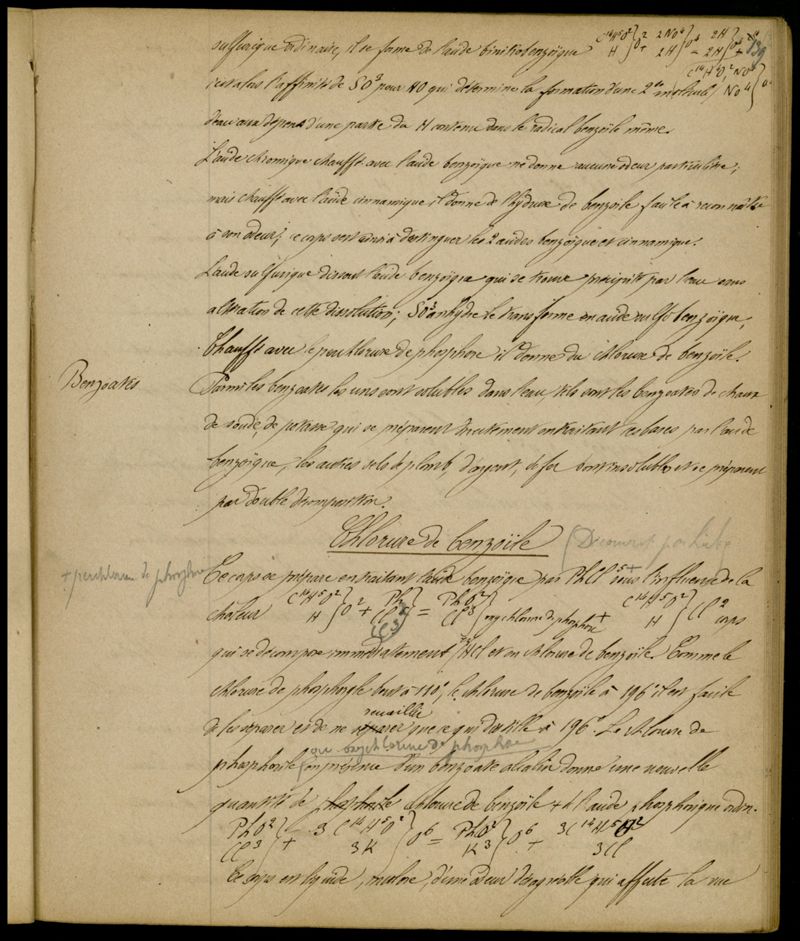 139
sulfurique ordinaire, il se forme de l'acide binitrobenzoïque C¹⁴H⁵O² } O² + 2NO⁴ } O⁴ = 2H } O⁴ +
H 2H 2H
C¹⁴H⁴O², NO⁴
c'est alors l'affinité de SO³ pour HO qui détermine la formation d'une 2de molécule NO⁴ } O²
d'eau aux dépens d'une partie du H contenu dans le radical benzoïle même.
L'acide chromique chauffé avec l'acide benzoïque ne donne aucune odeur particulière,
mais chauffé avec l'acide cinnamique il donne de l'hydrure de benzoïle facile à reconnaître
à son odeur; ce corps sert ainsi à distinguer les 2 acides benzoïque et cinnamique.
L'acide sulfurique dissout l'acide benzoïque qui se trouve précipité par l'eau sans
altération de cette dissolution; SO³ anhydre le transforme en acide sulfobenzoïque,
Chauffé avec le perchlorure de phosphore il donne du chlorure de benzoïle.
Benzoates
Parmi les benzoates les uns sont solubles dans l'eau tels sont les benzoates de chaux
de soude, de potasse qui se préparent directement en traitant ces bases par l'acide
benzoïque, les autres sels de plomb, d'argent, de fer sont insolubles et se préparent
par double décomposition.
Chlorure de benzoïle (Découvert par
+ perchlorure de phosphore
Ce corps se prépare en traitant l'acide benzoïque par PhCl⁵ + sous l'influence de la
chaleur C¹⁴H⁵O² } O² + Ph } = PhO² } oxychlorure de phosphore + C¹⁴H⁵O² } Cl² corps
H Cl² Cl³ Cl³ H
qui se décompose immédiatement HCl et en chlorure de benzoïle. Comme le
chlorure de phosphoyle bout à 110°, le chlorure de benzoïle à 196° il est facile
de les séparer et de ne séparer recueillir que ce qui distille à 196°. Le chlorure de
ou oxychlorure de phosphore
phosphoryle en présence d'un benzoate alcalin donne une nouvelle
quantité de phosphoryle chlorure de benzoïle & de l'acide phosphorique ordin.
PhO² } + 3 C¹⁴H⁵O² } O⁶ = PhO² } O⁶ + 3C¹⁴H⁵O²
Cl³ 3K K³ 3Cl
Ce corps est liquide, incolore, d'une odeur désagréable qui affecte la vue